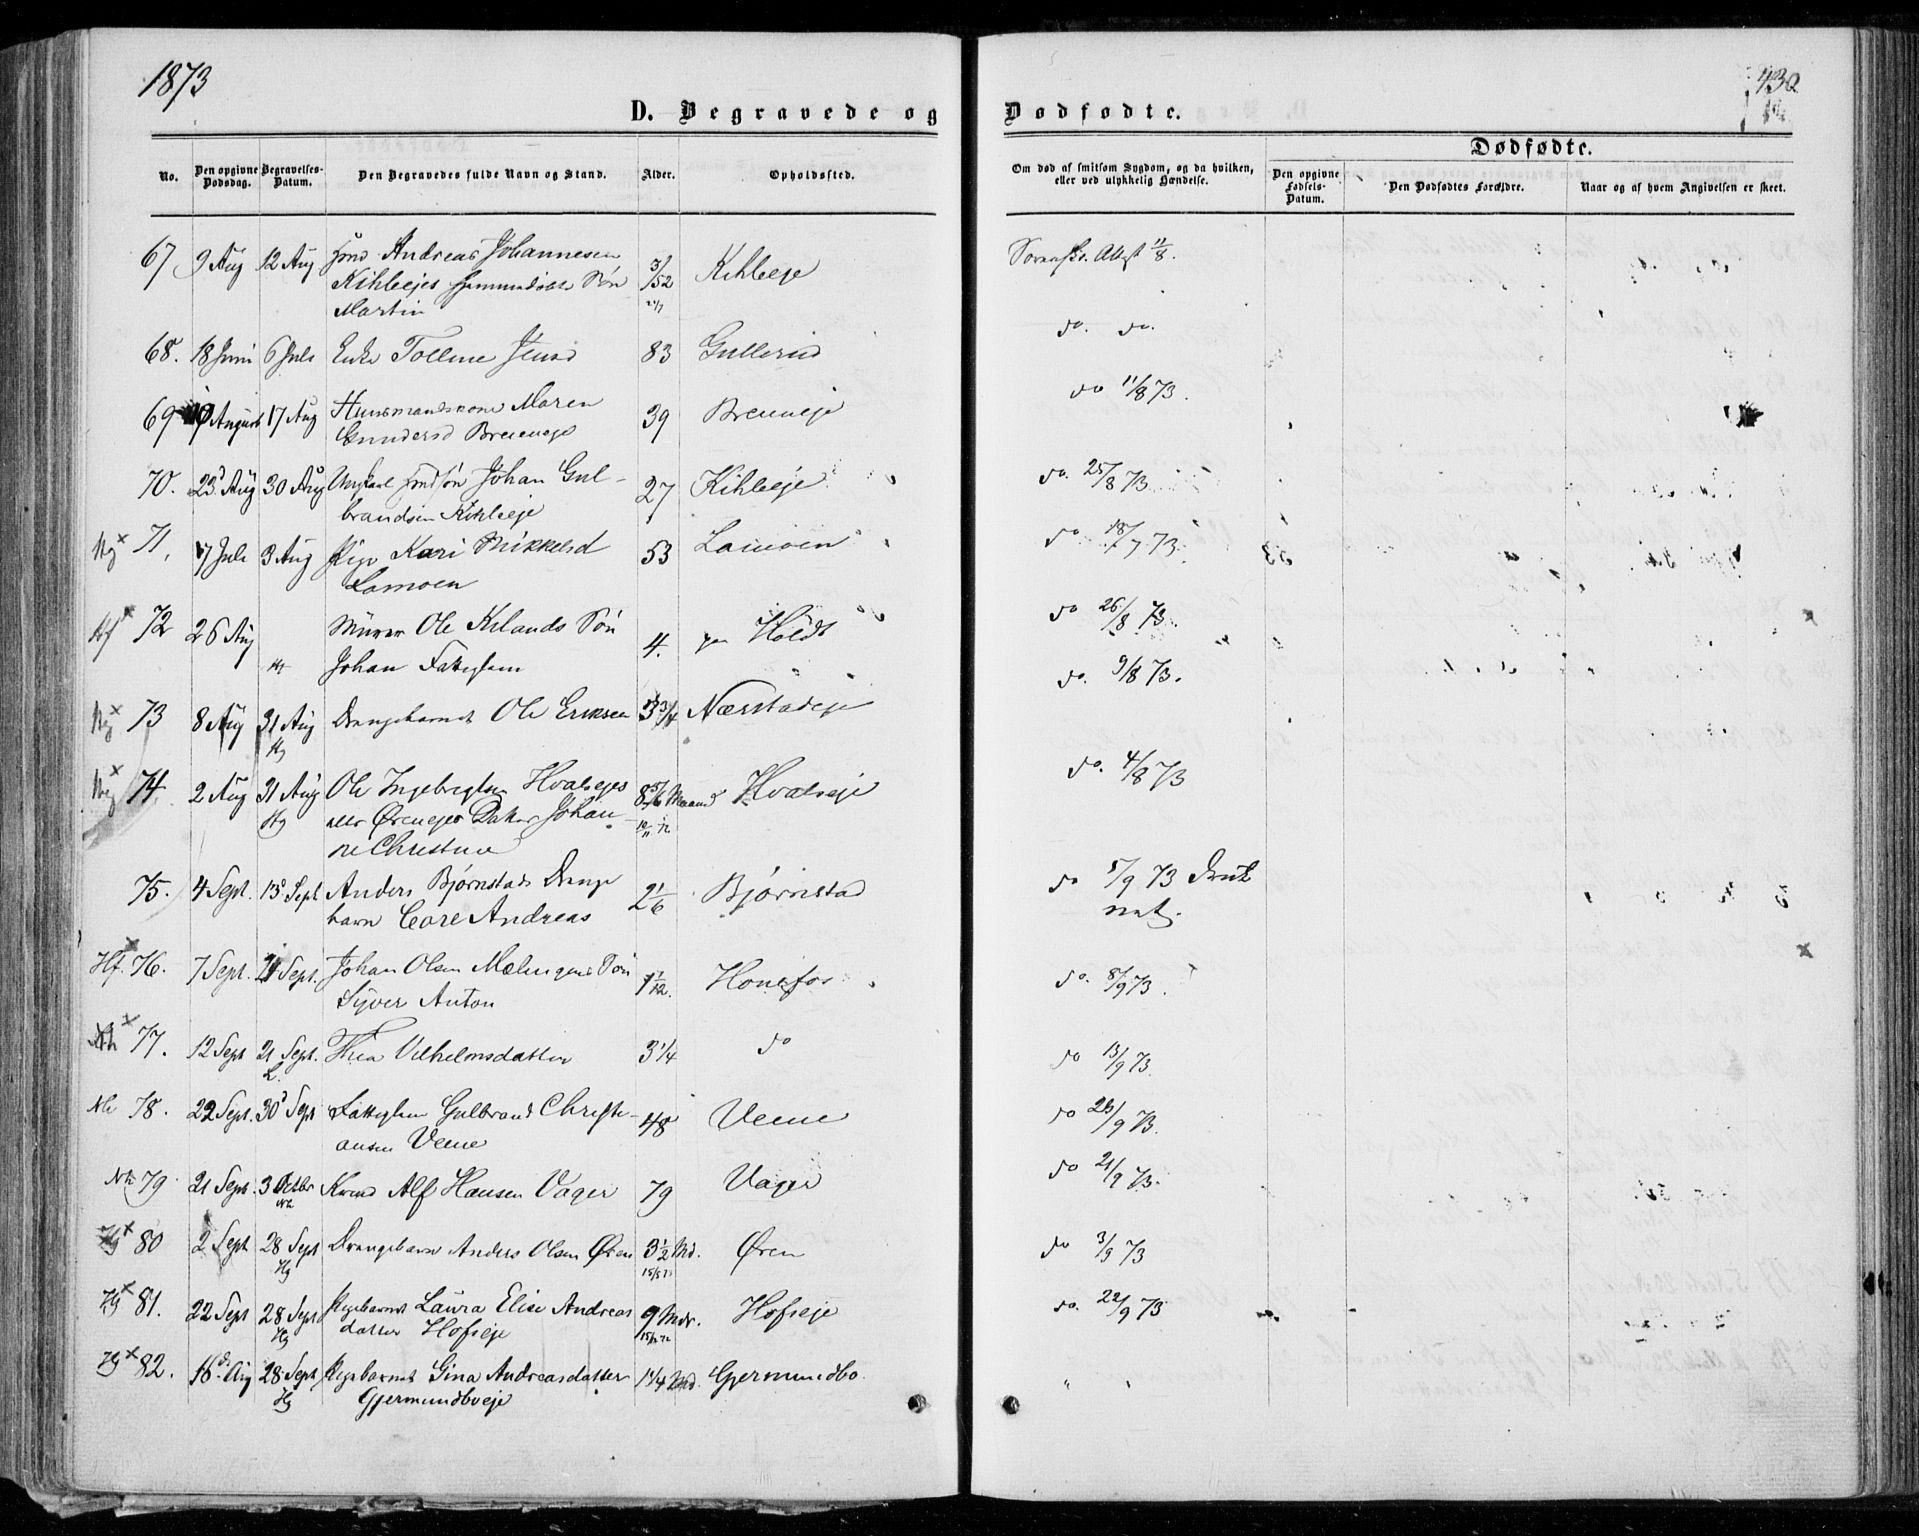 1873
430
D. Begravede og Dødfødte.
Dødfødte.
No. Den opgivne Dødsdag. Begravelses-Datum. Den Begravedes fulde Navn og Stand. Alder. Opholdssted. Om død af smitsom Sygdom, og da hvilken, eller ved ulykkelig Hændelse. Den opgivne Fødsels-Datum. Den Dødfødtes Forældre. Naar og af hvem Angivelsen er skeet.
67 9 Aug 12 Aug Andreas Johannesen 3/52 Kihleeje Sorensk. Attest 11/8.
Kihleejes Søn
Martin
68. 18 Juni 6 Juli Enke 83 Gullerud do. do.
69 August 17 Aug Huusmandskone Maren 39 Breneeje do 11/8 73.
Gundersd
70. 23 Aug 30 Aug Ungkarl Johan Gul- 27 Kihleeje do. 25/8 73.
brandsen Kihleeje
Hg x 71. 7 Juli 3 Aug Pige Kari Mikkelsd 53 Lamoen do 18/7 73.
Lamoen
Hf x 72 26 Aug Murer Ole Søn 4. do 26/8 73.
Johan Fattiglem
Hg x 73 8 Aug 31 Aug Drengebarnet Ole Eriksen 3 3/4 Næsstadeje do. 9/8 73.
Hg
Hg x 74. 2 Aug 31 Aug Ole Ingebregtsen Hvalsejes 8 5/6 Maaned Hvalseje do. 4/8 73
Hg Datter Johan-
ne Christine
75. 4 Sept. 13 Sept Anders Bjørnstads Drenge 2 1/6 Bjørnstad do 5/9 73
barn Carl Andreas
Hf. x 76. 7 Sept. 21 Sept. Johan Olsen Søn 1 1/12. Honefos do. 8/9 73.
Syver Anton
x 77. 12 Sept 21 Sept. Thea Vilhelmsdatter 3 1/4 do do 13/9 73.
Nh 78. 22 Sept. 30 Sept Fattiglem Gulbrand Christi- 48 Veme do 23/9 73.
ansen Veme
Nh 79 21 Sept. 3 Octbr Alf Hansen Vager 79 Vager do 21/9 73.
Nh
Hg x 80 2 Sept 28 Sept Drengebarn Anders Olsen Øren 3 1/2 Md. Øren do 3/9 73
Hg
Hg x 81. 22 Sept 28 Sept Pigebarnet Laura Elise Andreas 9 Mdr. Hofseje do. 22/9 73
Hg datter Hofseje
Hg x 82. 16 Aug 28 Sept Pigebarnet Gina Andreasdatter 1 1/4 Md. Gjermundbo
Hg Gjermundboeje